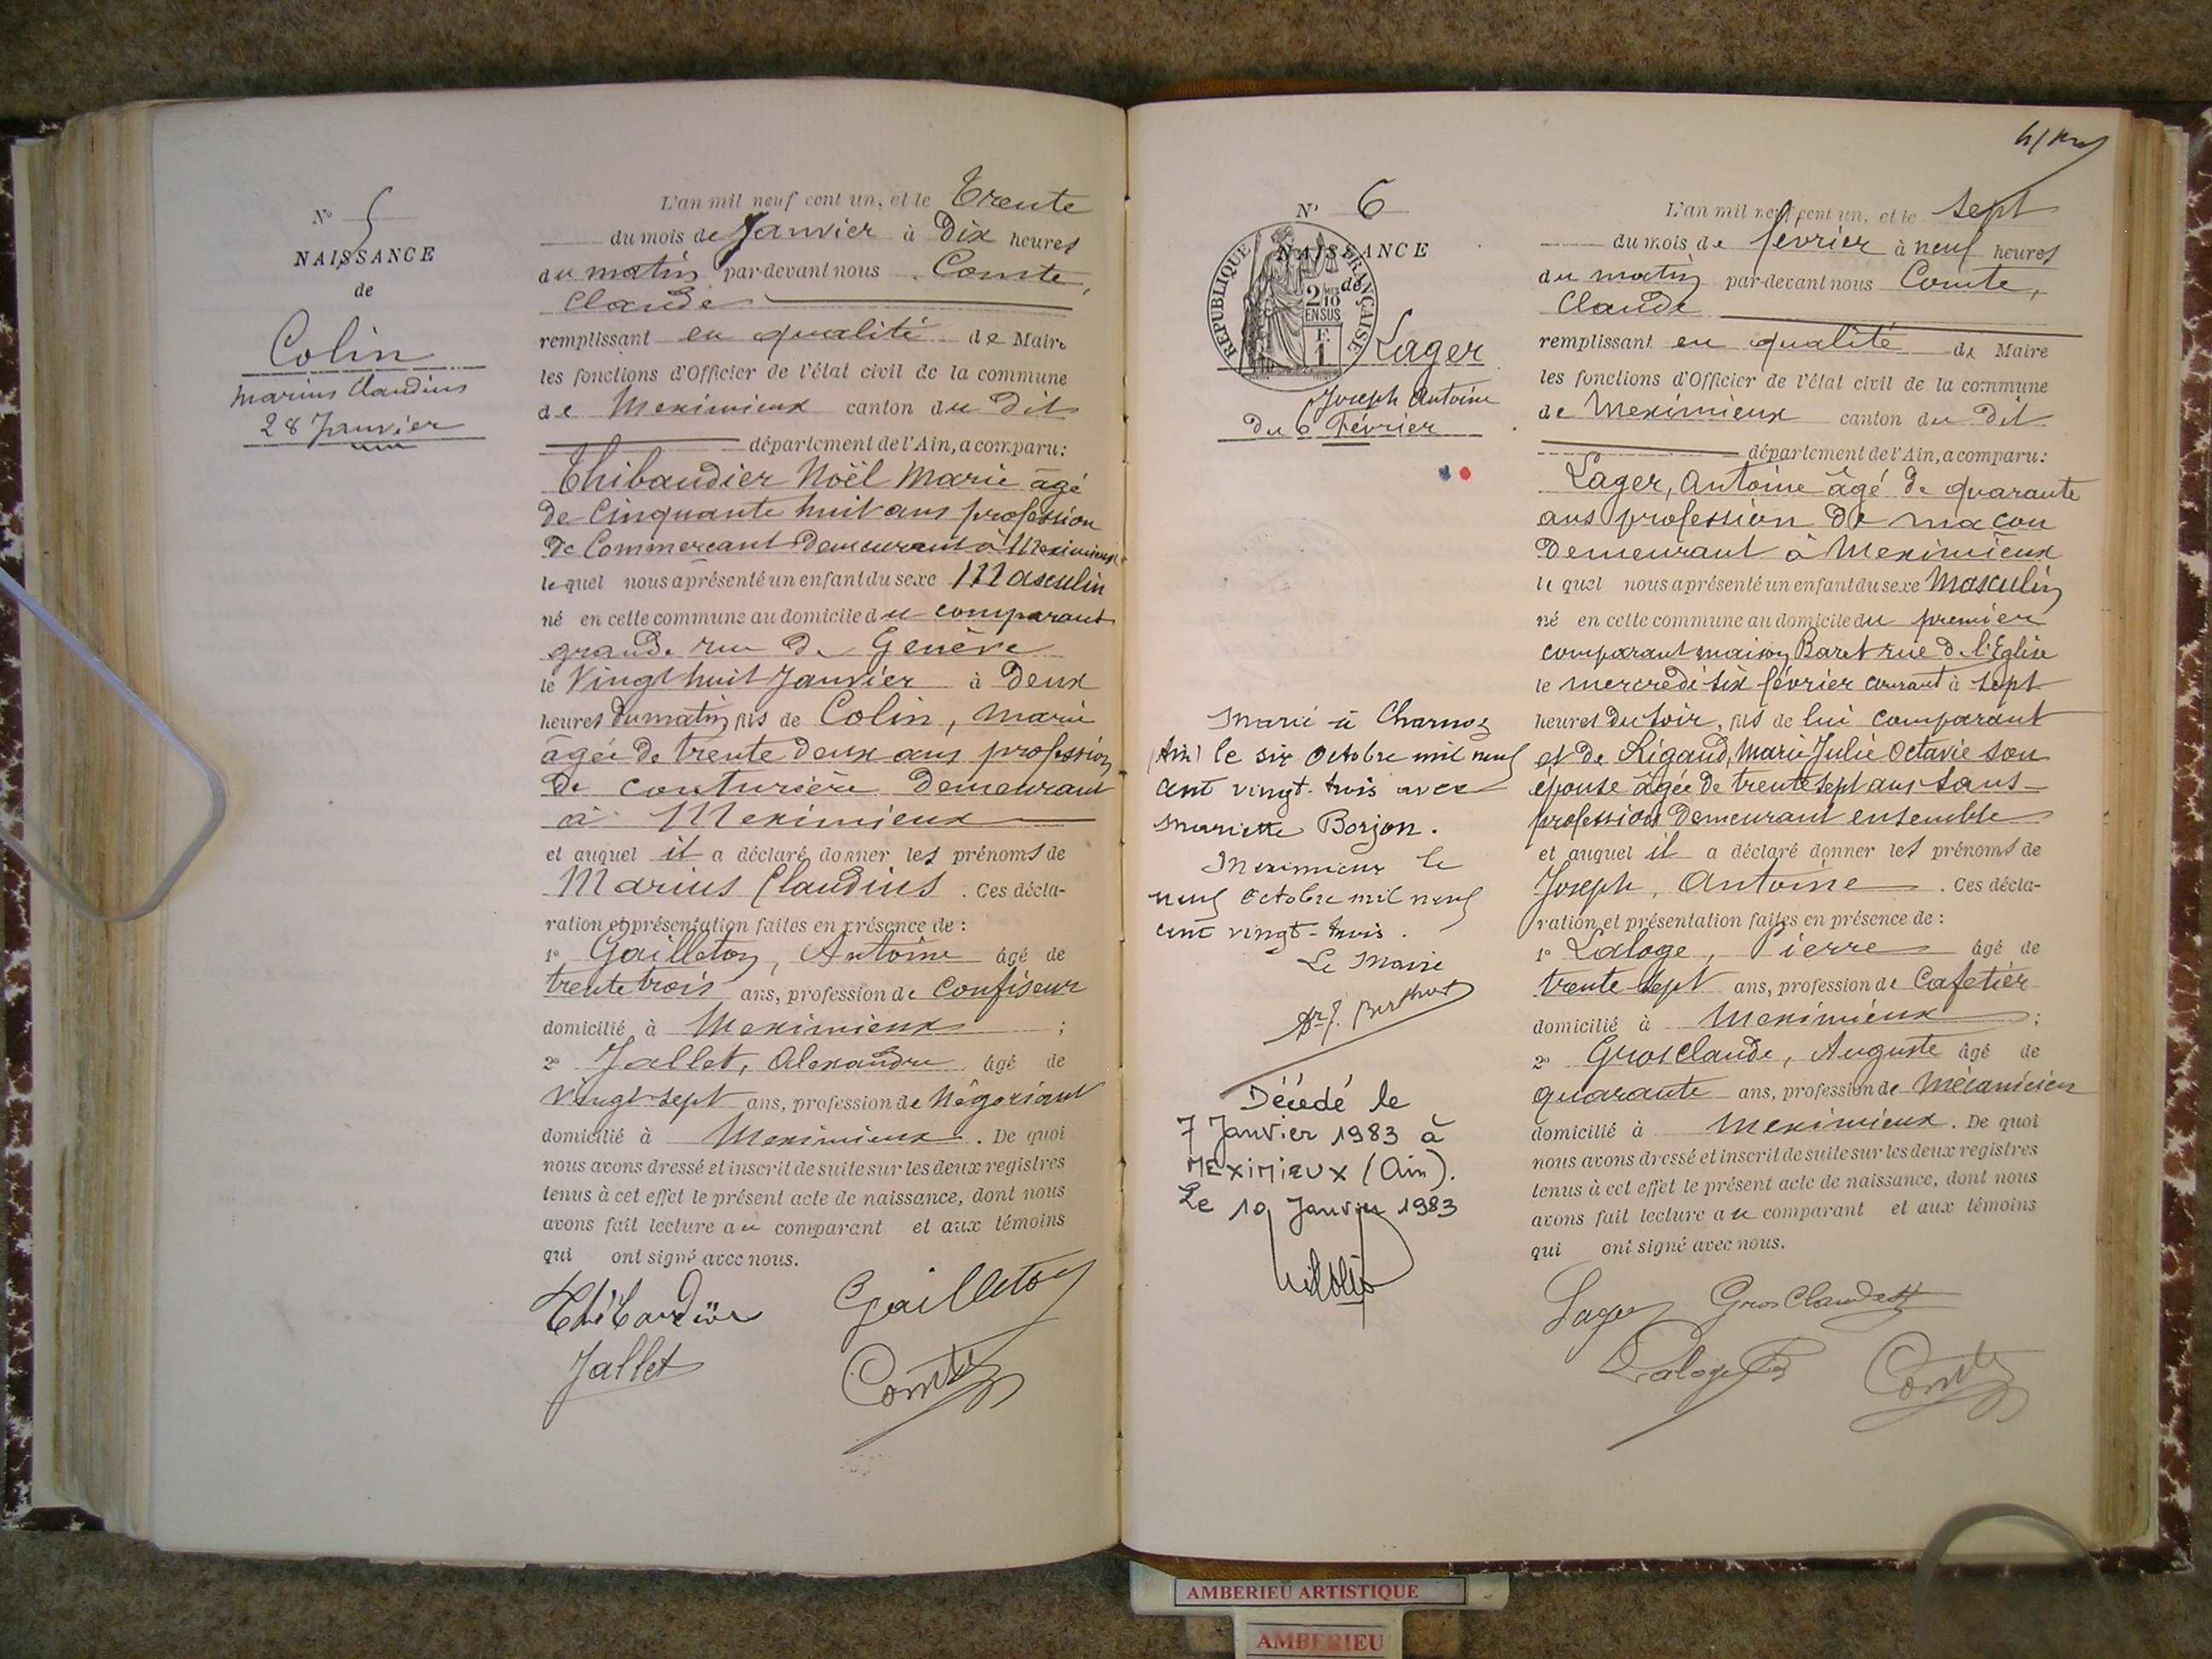 N° 5
NAISSANCE
de
Colin
Marius Claudius
28 Janvier
L'an mil neuf cent un, et le Trente
du mois de Janvier à Dix heures
du matin par-devant nous Comte,
Claude
remplissant en qualité de Maire
les fonctions d'Officier de l'état civil de la commune
de Meximieux canton du dit
département de l'Ain, a comparu:
Thibaudier Noël Marie âgé
de Cinquante huit ans profession
de Commerçant demeurant à Meximieux
lequel nous a présenté un enfant du sexe Masculin
né en cette commune au domicile du comparant
grande rue de Genève
le Vingt huit Janvier à Deux
heures du matin, fils de Colin, Marie
âgée de trente deux ans profession
de couturière demeurant
à Meximieux
et auquel il a déclaré donner les prénoms de
Marius Claudius. Ces décla-
ration et présentation faites en présence de :
1° Gailleton, Antoine âgé de
trente trois ans, profession de Confiseur
domicilié à Meximieux ;
2° Jallet, Alexandre âgé de
Vingt-sept ans, profession de Négociant
domicilié à Meximieux. De quoi
nous avons dressé et inscrit de suite sur les deux registres
tenus à cet effet le présent acte de naissance, dont nous
avons fait lecture au comparant et aux témoins
qui ont signé avec nous.
Thibaudier Gailleton
Jallet Comte
N° 6
NAISSANCE
de
RÉPUBLIQUE FRANÇAISE
2 MES 10
EN SUS
F.
1
Lager
Joseph Antoine
Du 6 Février
Marié à Charnoz
(Ain) le six Octobre mil neuf
cent vingt-trois avec
Mariette Borjon.
Meximieux le
neuf Octobre mil neuf
cent vingt-trois.
Le Maire
Berthot
Décédé le
7 Janvier 1983 à
MEXIMIEUX (Ain).
Le 10 Janvier 1983
L'an mil neuf cent un, et le sept
du mois de février à neuf heures
du matin par-devant nous Comte,
Claude
remplissant en qualité de Maire
les fonctions d'Officier de l'état civil de la commune
de Meximieux canton du dit
département de l'Ain, a comparu:
Lager, Antoine âgé de quarante
ans profession de maçon
Demeurant à Meximieux
lequel nous a présenté un enfant du sexe Masculin
né en cette commune au domicile du premier
comparant maison Baret rue de l'Eglise
le mercredi six février courant à sept
heures du soir, fils de lui comparant
et de Rigaud, Marie Julie Octavie son
épouse âgée de trente sept ans sans
profession demeurant ensemble
et auquel il a déclaré donner les prénoms de
Joseph, Antoine. Ces décla-
ration et présentation faites en présence de :
1° Laloge, Pierre âgé de
trente sept ans, profession de Cafetier
domicilié à Meximieux ;
2° Grosclaude, Auguste âgé de
quarante ans, profession de Mécanicien
domicilié à Meximieux. De quoi
nous avons dressé et inscrit de suite sur les deux registres
tenus à cet effet le présent acte de naissance, dont nous
avons fait lecture au comparant et aux témoins
qui ont signé avec nous.
Lager Grosclaude
Laloge Comte
AMBERIEU ARTISTIQUE
AMBERIEU